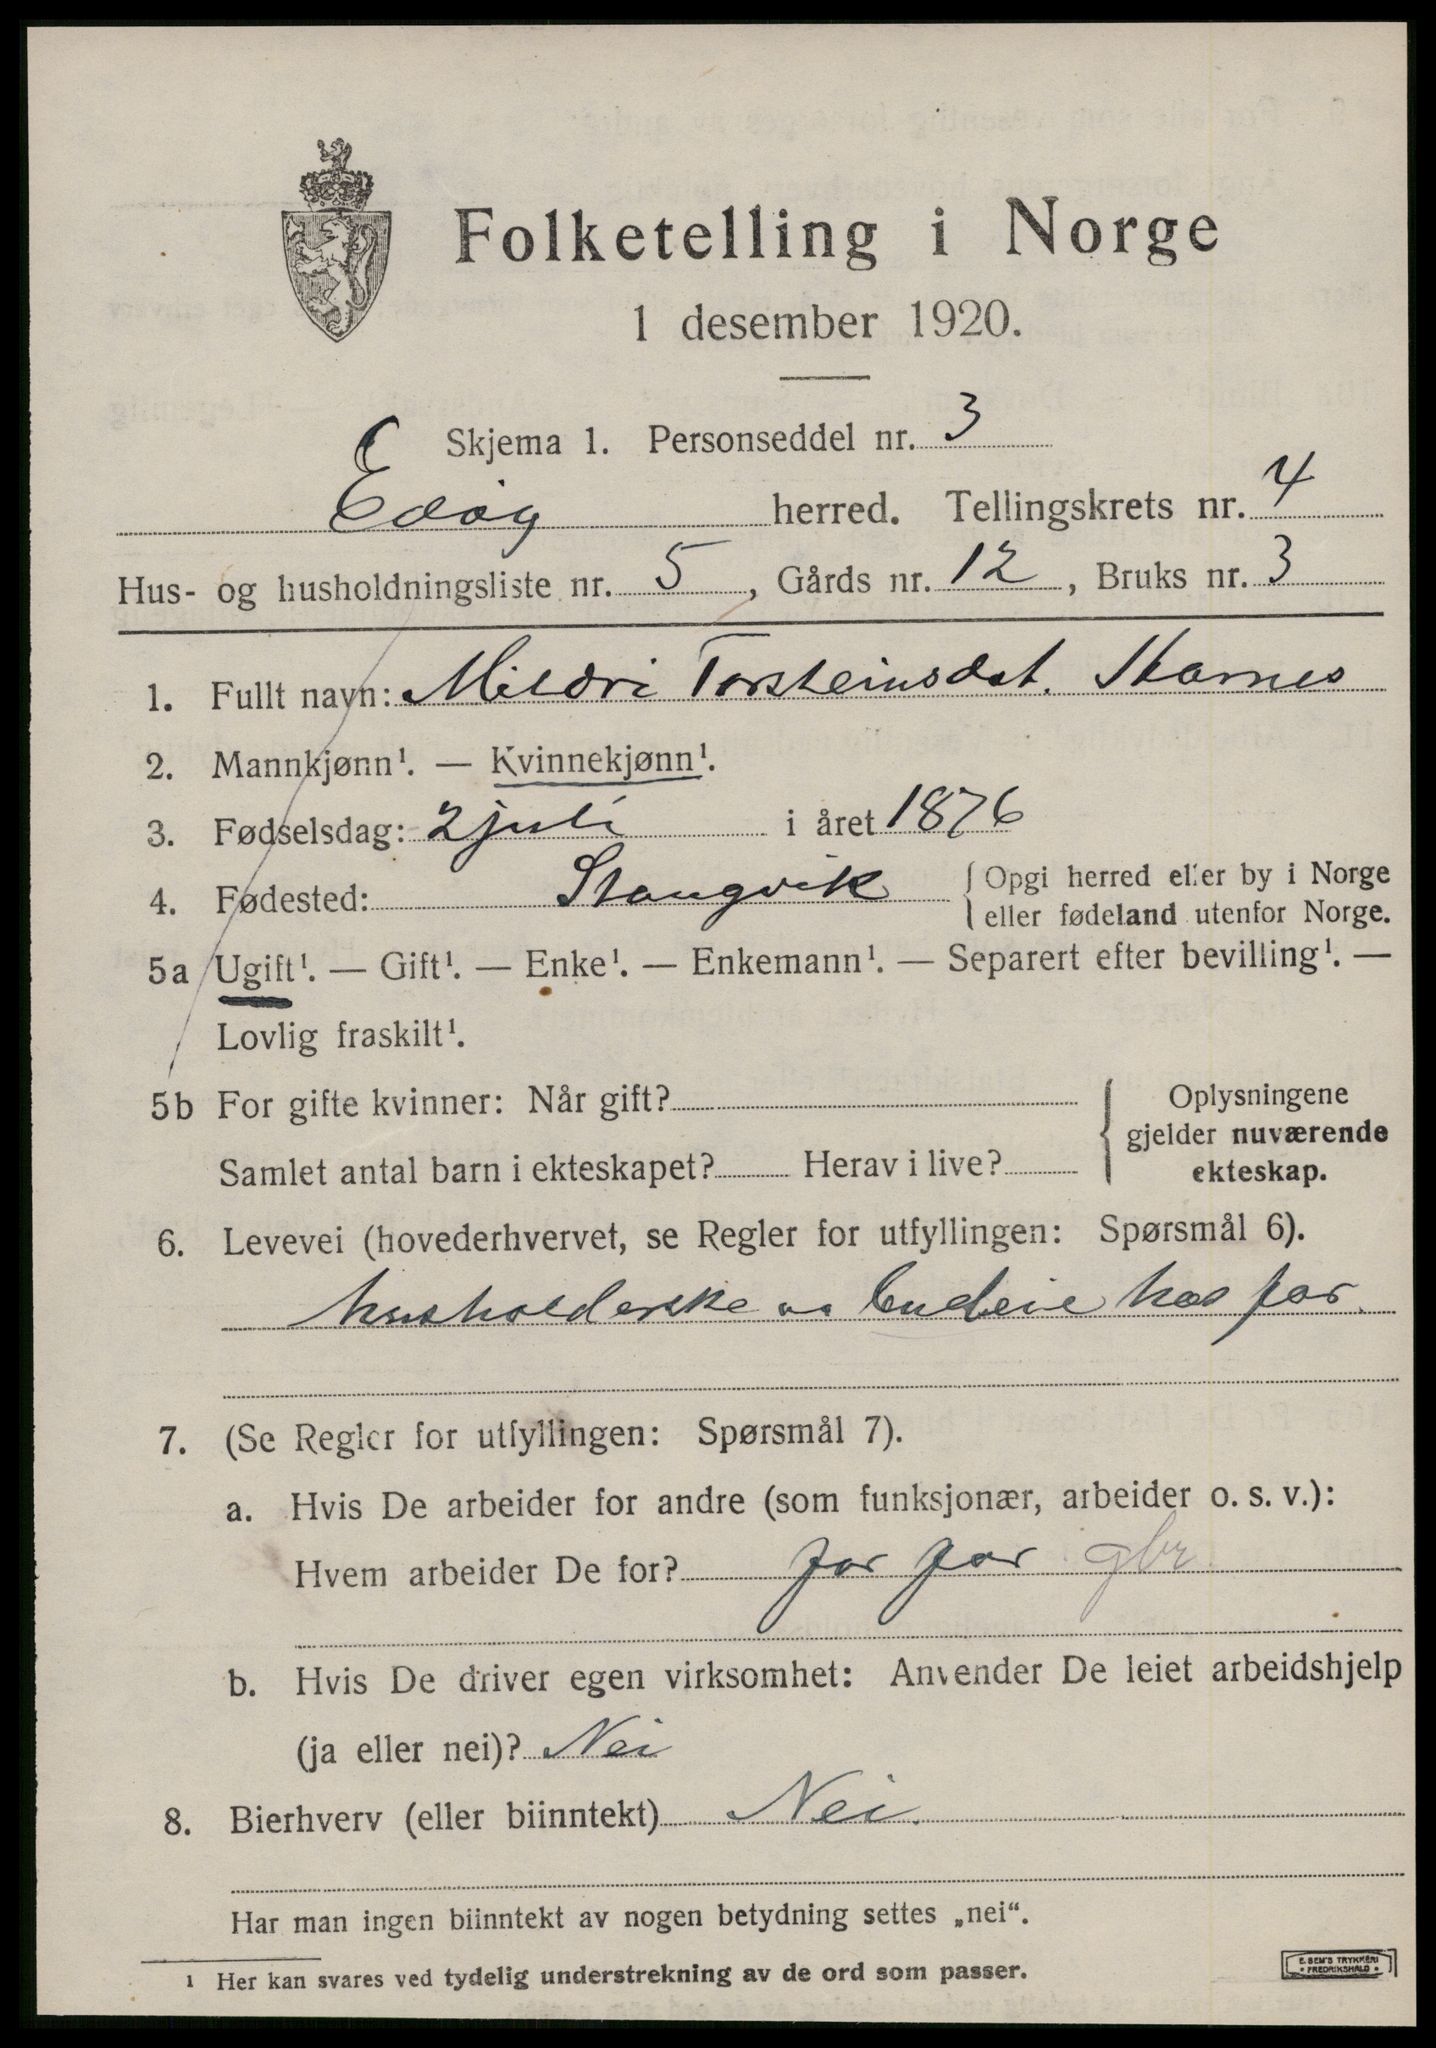 Folketelling i Norge
1 desember 1920.
Skjema 1. Personseddel nr. 3
Edøy herred. Tellingskrets nr. 4
Hus- og husholdningsliste nr. 5, Gårds nr. 12, Bruks nr. 3
1. Fullt navn: Mildri Torsteinsdat. Starnes
2. Mannkjønn¹. — Kvinnekjønn¹.
3. Fødselsdag: 2 juli i året 1876
4. Fødested: Stangvik { Opgi herred eller by i Norge
eller fødeland utenfor Norge.
5a Ugift¹. — Gift¹. — Enke¹. — Enkemann¹. — Separert efter bevilling¹. —
Lovlig fraskilt¹.
5b For gifte kvinner: Når gift?
Samlet antal barn i ekteskapet? Herav i live?
Oplysningene
gjelder nuværende
ekteskap.
6. Levevei (hovederhvervet, se Regler for utfyllingen: Spørsmål 6).
husholderske og budeie hos far.
7. (Se Regler for utfyllingen: Spørsmål 7).
a. Hvis De arbeider for andre (som funksjonær, arbeider o. s. v.):
Hvem arbeider De for? for far gbr
b. Hvis De driver egen virksomhet: Anvender De leiet arbeidshjelp
(ja eller nei)? Nei
8. Bierhverv (eller biinntekt) Nei.
Har man ingen biinntekt av nogen betydning settes „nei“.
¹ Her kan svares ved tydelig understrekning av de ord som passer.
E. SEM'S TRYKKERI
• FREDRIKSHALD •